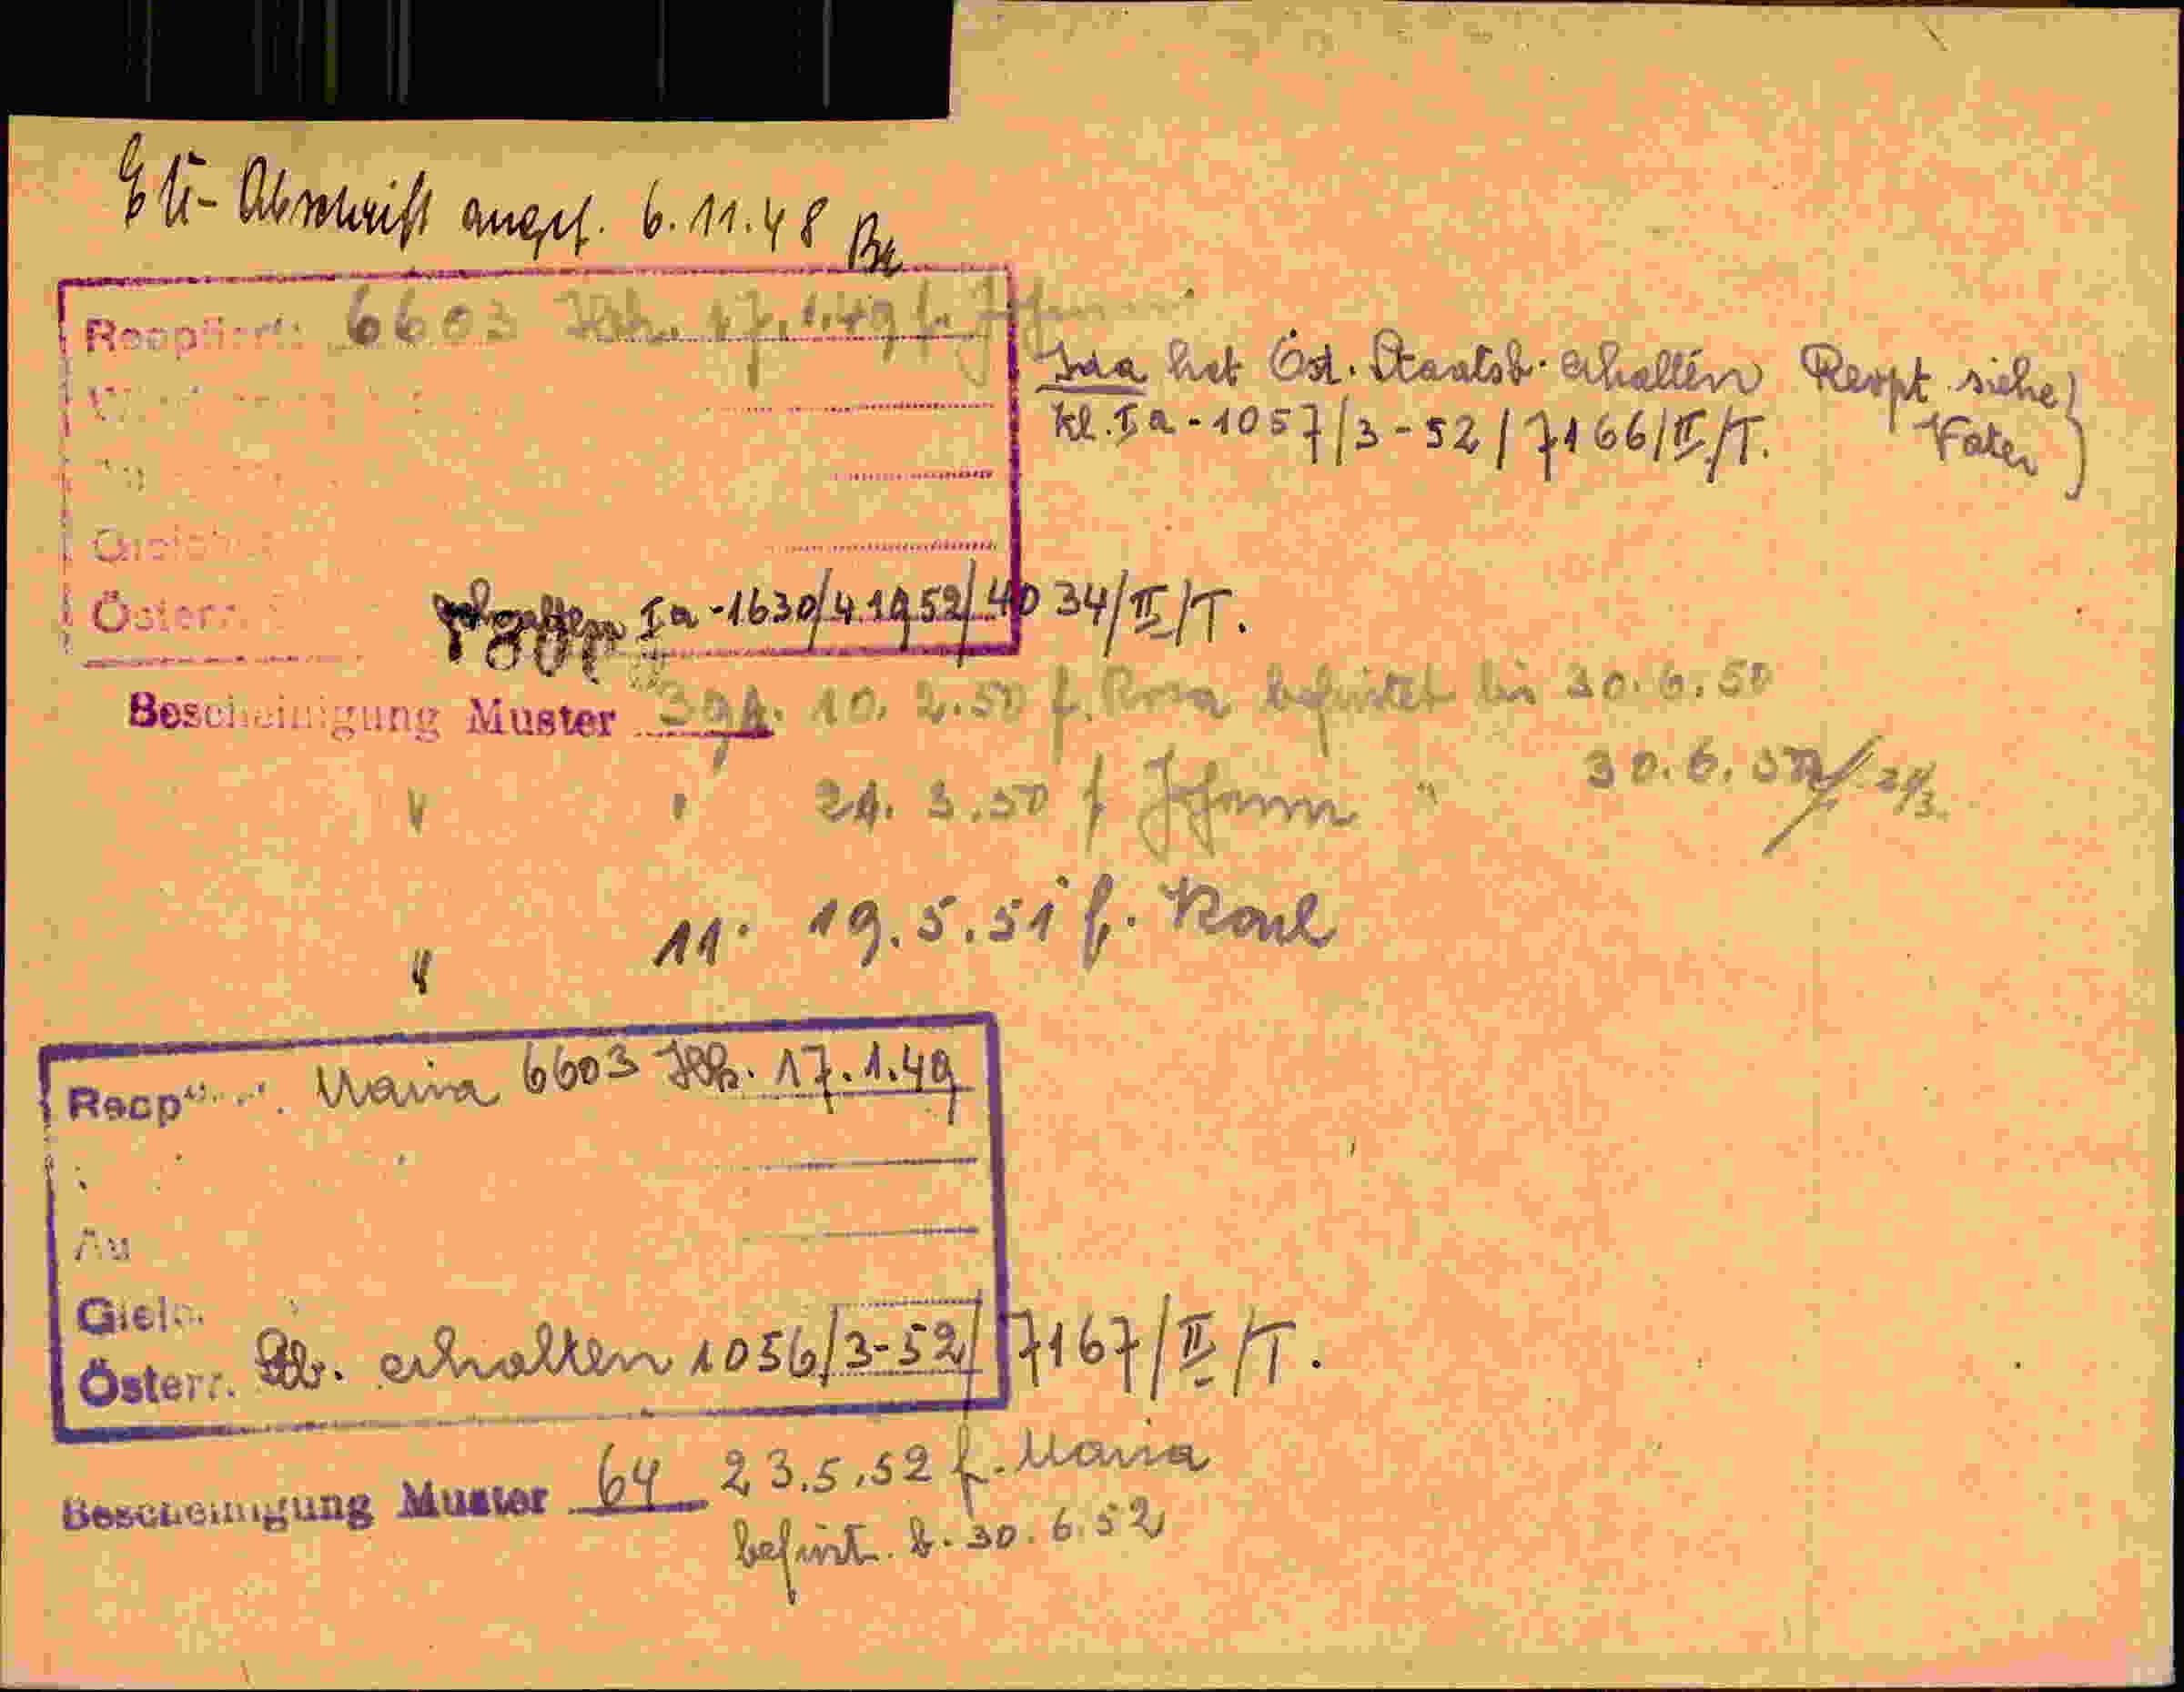 EK-Abschrift angef. 6.11.48
6603 17.1.49 f. Johann
Ida hat Öst. Staatsb. erhalten Rezpt siehe
kl. Ia-1057/3-52/7166/II/T. Vater
Österr. Ia-1630/4.1952/4034/II/T.
Bescheinigung Muster 39 A. 10. 2.50 f. Rosa befristet bis 30.6.50
" " 24. 3.50 f Johann " 30.6.50 24/3.
" 11. 19.5.51 f. Karl
Maria 6603 17.1.49
Au
Österr. Stb. erhalten 1056/3-52/7167/II/T.
Bescheinigung Muster 64 23.5.52 f. Maria
befrist. b. 30.6.52